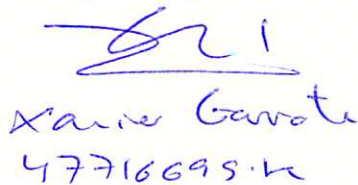 Xavier Garrote
47716699.K